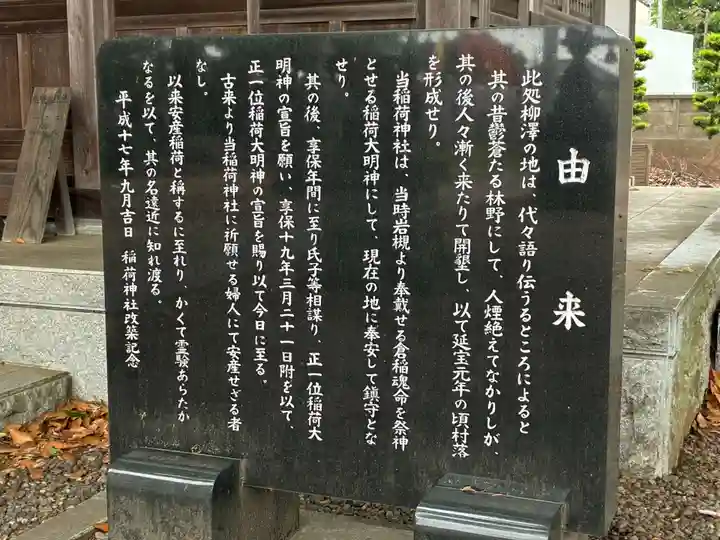 由来
此処柳澤の地は、代々語り伝うるところによると
其の昔鬱蒼たる林野にして、人煙絶えてなかりしが、
其の後人々漸く来たりて開墾し、以て延宝元年の頃村落
を形成せり。
当稲荷神社は、当時岩槻より奉戴せる倉稲魂命を祭神
とせる稲荷大明神にして、現在の地に奉安して鎮守とな
せり。
其の後、享保年間に至り氏子等相謀り、正一位稲荷大
明神の宣旨を願い、享保十九年三月二十一日附を以て、
正一位稲荷大明神の宣旨を賜り以て今日に至る。
古来より当稲荷神社に祈願せる婦人にて安産せざる者
なし。
以来安産稲荷と称するに至れり、かくて霊験あらたか
なるを以て、其の名遠近に知れ渡る。
平成十七年九月吉日 稲荷神社改築記念